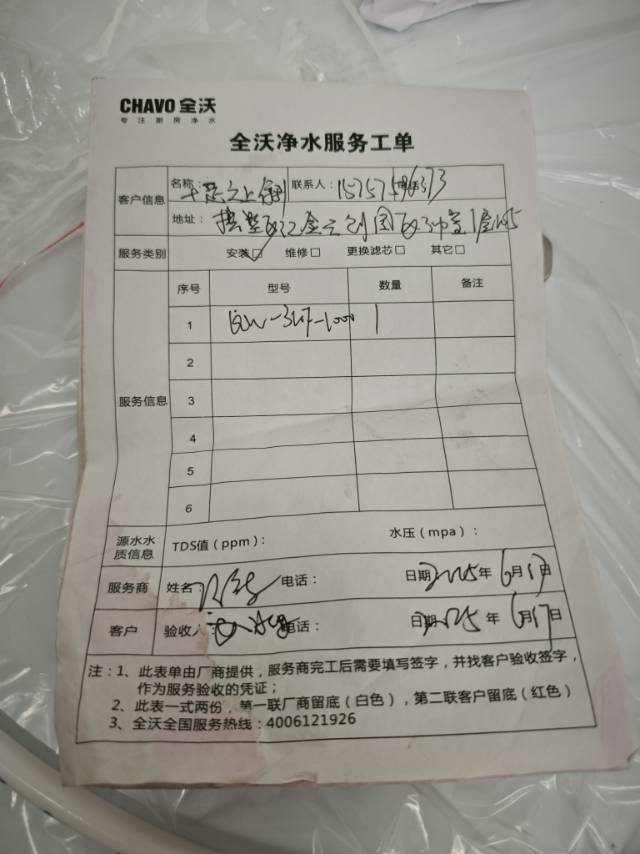 CHAVO 全沃
专注厨房净水
全沃净水服务工单
客户信息
名称: 联系人:
地址:
服务类别 安装☑ 维修□ 更换滤芯□ 其它□
服务信息
序号 型号 数量 备注
1 1
2
3
4
5
6
源水水质信息 TDS值(ppm): 水压(mpa):
服务商 姓名: 电话: 日期 2025年 6月17日
客户 验收人: 电话: 日期 2025年 6月17日
注:1、此表单由厂商提供,服务商完工后需要填写签字,并找客户验收签字,
作为服务验收的凭证;
2、此表一式两份,第一联厂商留底(白色),第二联客户留底(红色)
3、全沃全国服务热线:4006121926